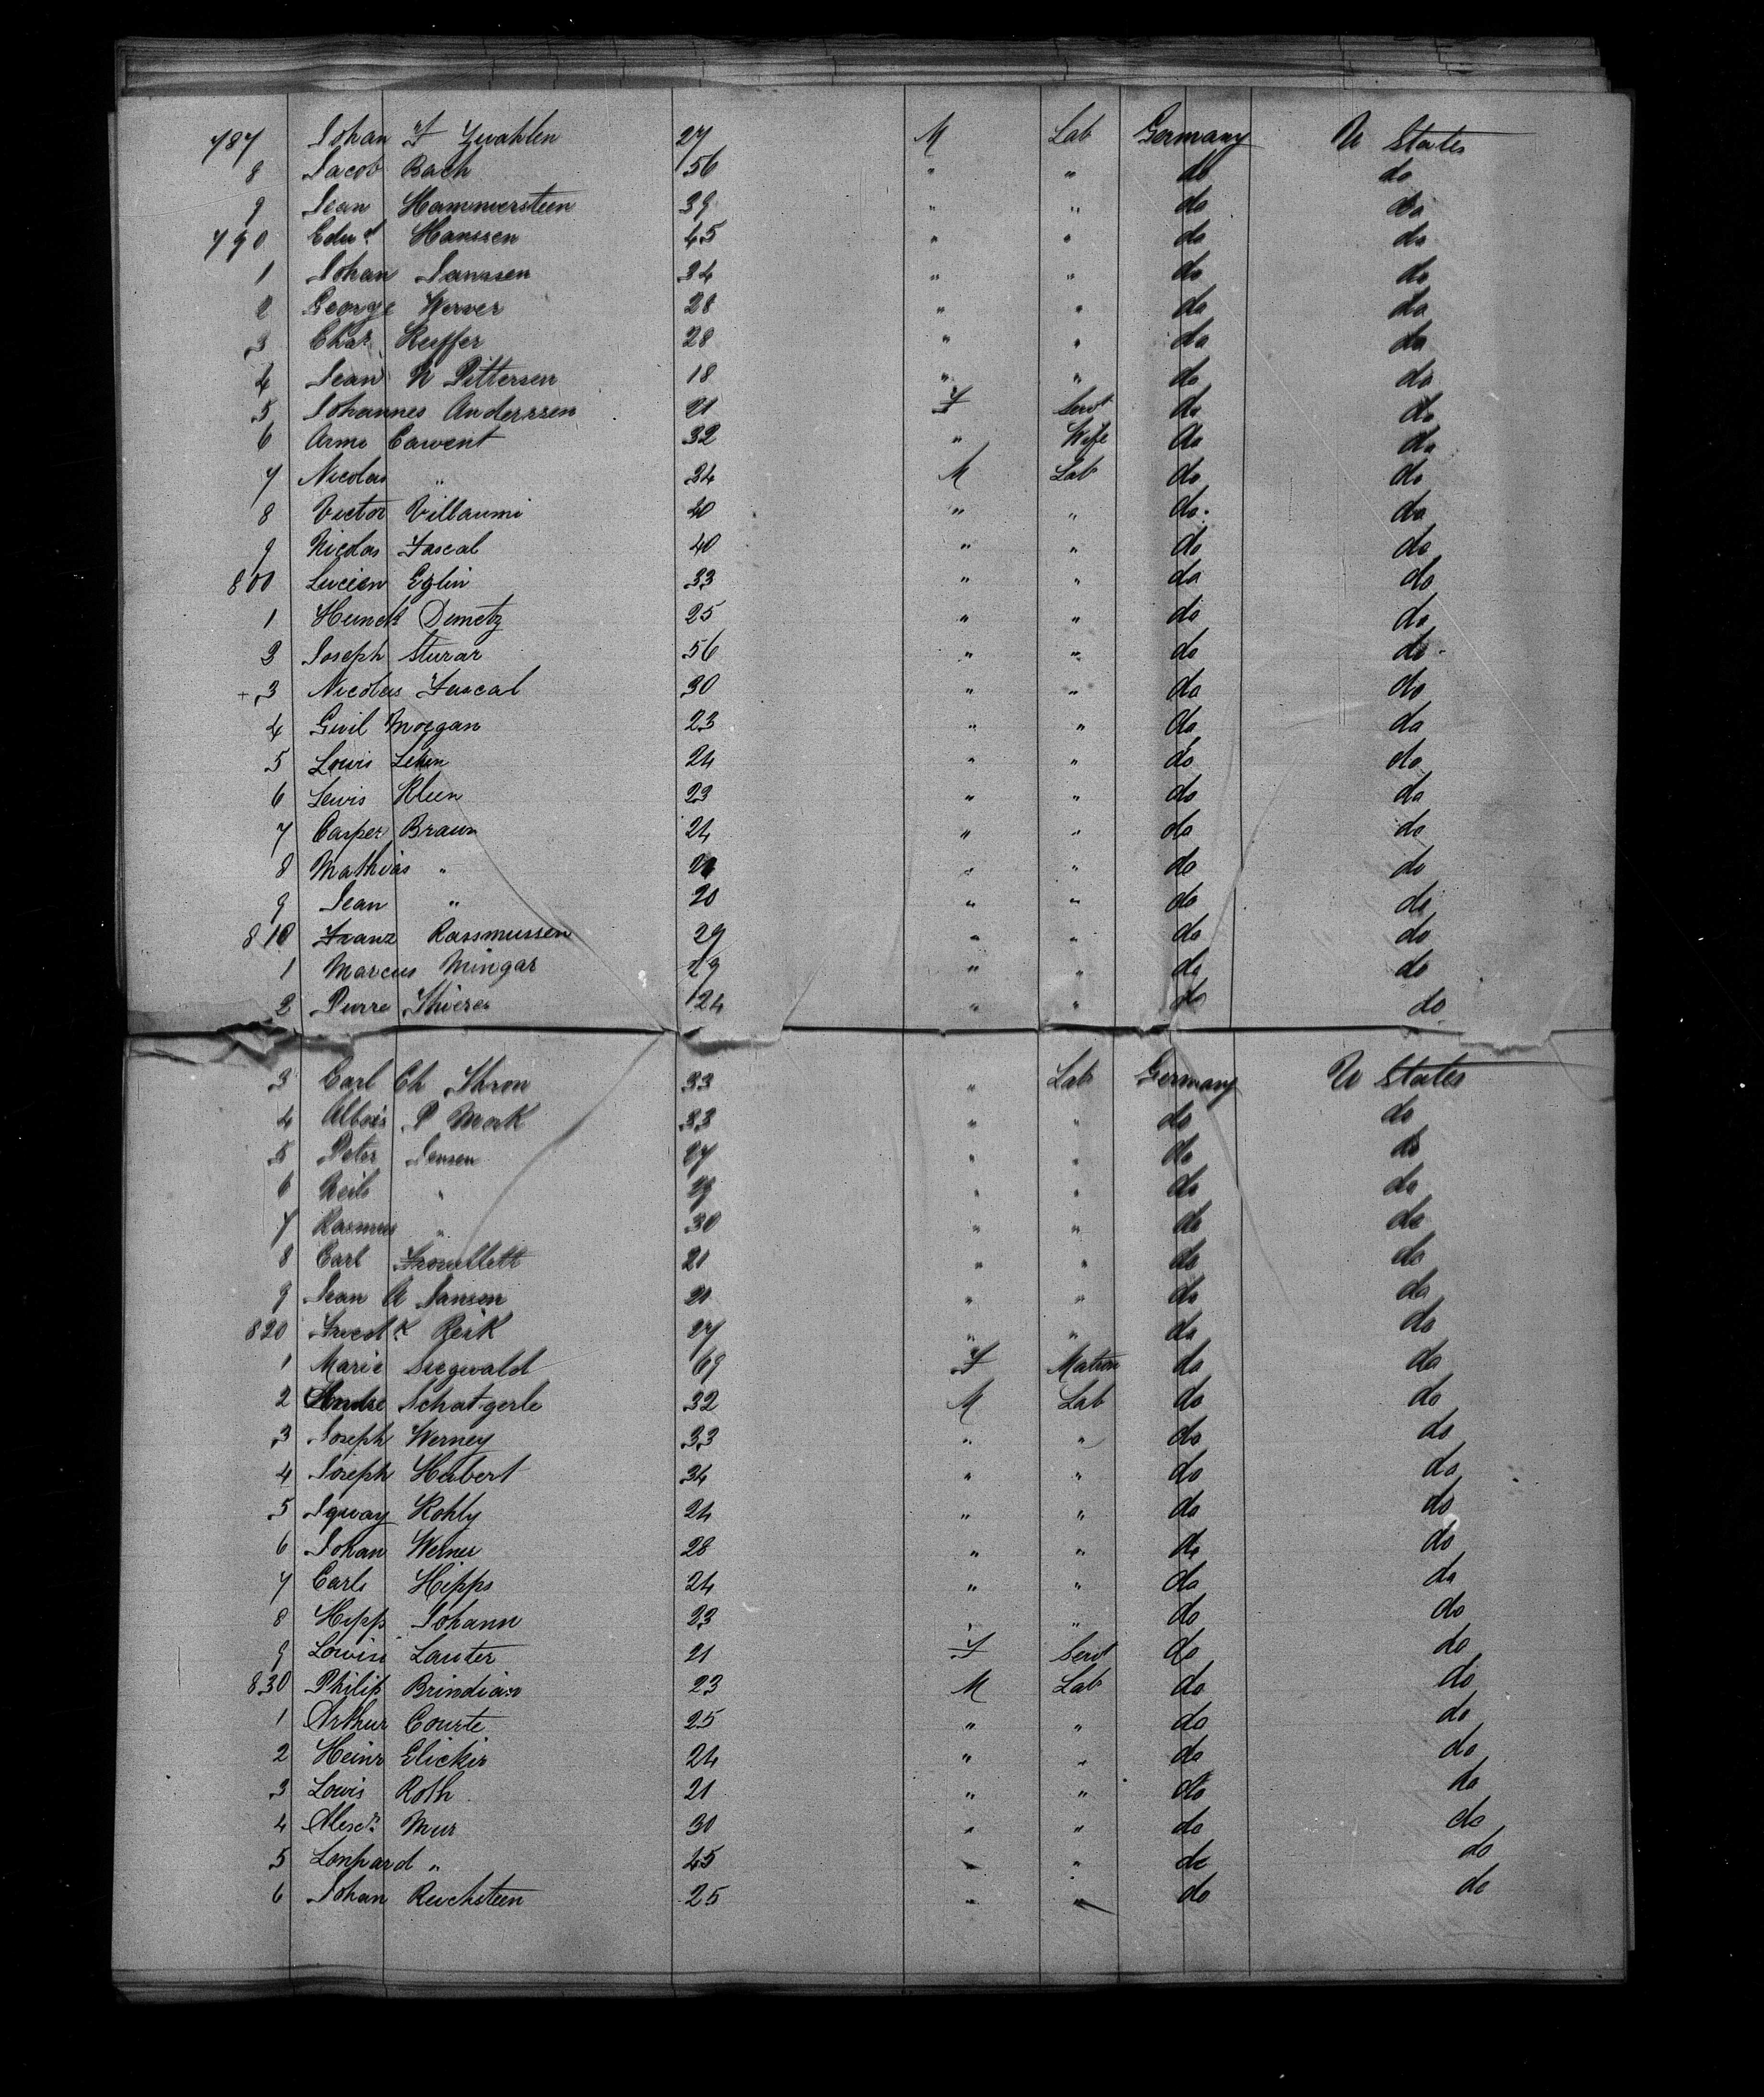 787 Johan F Zwahlen 27 M Lab Germany U States
8 Jacob Bach 56 " " do do
9 Jean Hammersteen 39 " " do do
790 Edwd Hanssen 45 " " do do
1 Johan Janssen 34 " " do do
2 George Werver 28 " " do do
3 Chas Keiffer 28 " " do do
4 Jean N Pittersen 18 " " do do
5 Johannes Anderssen 21 F Servt do do
6 Arme Cawent 32 " Wife do do
7 Nicolas " 34 M Lab do do
8 Victor Villaumi 40 " " do do
9 Nicolas Fascal 40 " " do do
800 Lucien Eglin 33 " " do do
1 Demetz 25 " " do do
2 Joseph Sturar 56 " " do do
+ 3 Nicolas Fascal 30 " " do do
4 Guil Morgan 23 " " do do
5 Louis 24 " " do do
6 Lewis Kleen 23 " " do do
7 Casper Braun 24 " " do do
8 Mathias " " " do do
9 Jean " 20 " " do do
810 Franz Rassmussen 29 " " do do
1 Marcus Mingar 29 " " do do
2 Pierre Thieres 24 " " do do
3 Carl Ch Thron 33 " Lab Germany U States
4 Albois P Mork 33 " " do do
5 Peter Jensen 27 " " do do
6 Neils " 29 " " do do
7 Rasmus " 30 " " do do
8 Carl 21 " " do do
9 Jean A Jansen 21 " " do do
820 Beik 27 " " do do
1 Marie Siegwald 69 F Matron do do
2 Andre Schatgerle 32 M Lab do do
3 Joseph Werney 33 " " do do
4 Joseph Hubert 34 " " do do
5 Kohly 24 " " do do
6 Johan Werner 28 " " do do
7 Carls Hipps 24 " " do do
8 Hipps Johann 23 " " do do
9 Lowisi Lauter 21 F Servt do do
830 Philip Brindian 23 M Lab do do
1 Arthur Courte 25 " " do do
2 Heinr Elickir 24 " " do do
3 Lowis Roth 21 " " do do
4 Alexr Mur 30 " " do do
5 Lonhard " 45 " " do do
6 Johan Reichsteen 25 " " do do